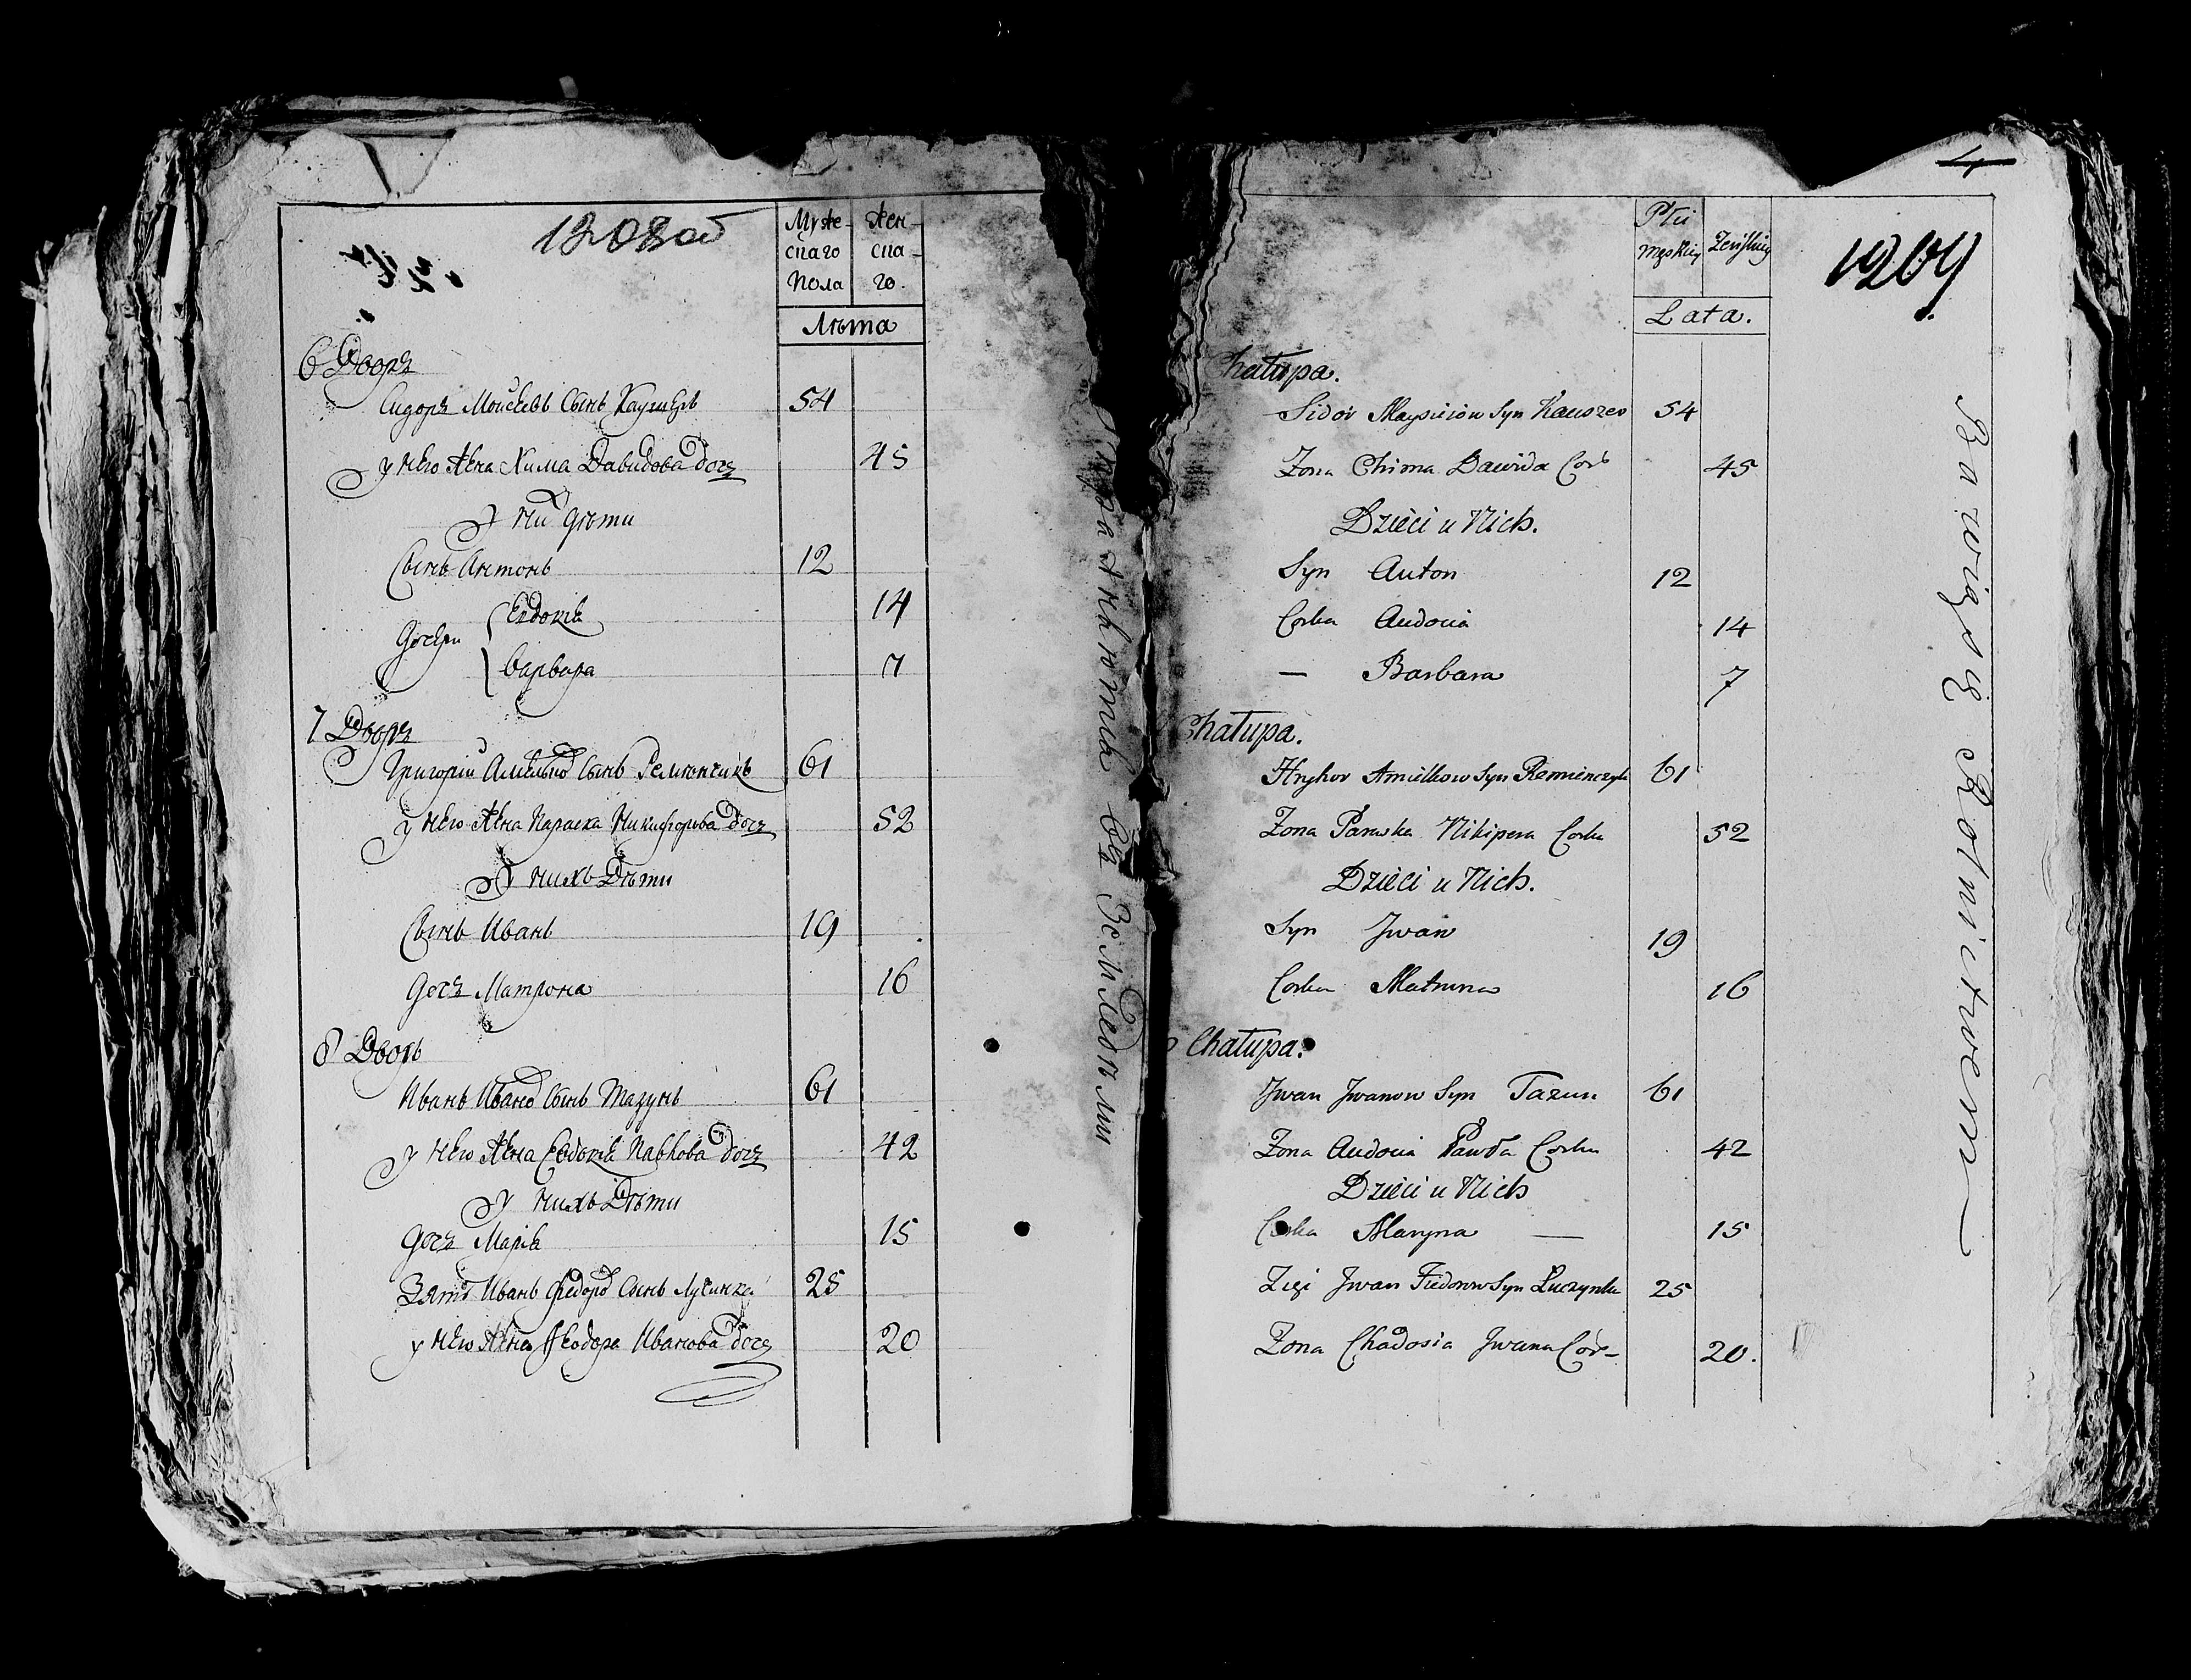 1208 об
Муже-
скаго
пола
жен-
ска-
го.
Лѣта
6 Дворъ
Сидоръ Моисеевъ сынъ 54
у него жена Хима Давидова дочь 45
У них дѣти
Сынъ Антонъ 12
Дочери
Евдокія 14
Варвара 7
7 Дворъ
Григорій сынъ Ременчикъ 61
у него жена Параска Никифорова дочь 52
У нихъ дѣти
Сынъ Иванъ 19
Дочь Матрона 16
8 Дворъ
Иванъ Иванов сынъ Тазунъ 61
У него жена Евдокія Павлова дочь 42
У нихъ дѣти
Дочь Марія 15
Зять Иванъ Федоров сынъ Лучинка 25
у него жена Феодора Иванова дочь 20
съ Земледѣлми
4
1209
Płci
męskiey
Żeńskiey
Lata.
Chałupa.
Sidor syn 54
Żona Chima Dawida Cor 45
Dzieci u Nich.
Syn Anton 12
Corka Audocia 14
— Barbara 7
Chałupa.
Hryhor Amielkow Syn Remienczyk 61
Żona Paraska Nikipera Corka 52
Dzieci u Nich.
Syn Jwan 19
Corka Matruna 16
Chałupa.
Jwan Jwanow Syn Tazun 61
Żona Audocia Pawła Corka 42
Dzieci u Nich
Corka Maryna — 15
Zięć Jwan Fiedorow Syn Łuczynka 25
Żona Chadosia Jwana Cor– 20.